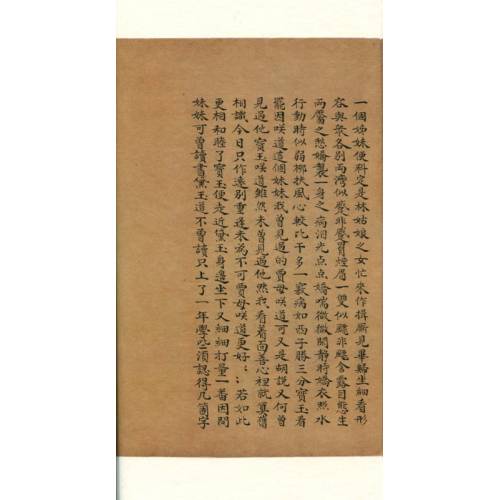 一個姊妹便料定是林姑娘之女忙來作揖厮見畢歸坐細看形
容與衆各別兩灣似蹙非蹙罥烟眉一雙似飄非飄含露目態生
兩靨之愁嬌襲一身之病泪光点点嬌喘微微閒靜時嬌衣照水
行動時似弱柳扶風心較比干多一竅病如西子勝三分寶玉看
罷因咲道這個妹妹我曾見過的賈母咲道可又是胡說又何曾
見過他寶玉咲道雖然未曾見過他然我看着面善心裡就算舊
相識今日只作遠別重逢未為不可賈母咲道更好〻〻若如此
更相和睦了寶玉便走近黛玉身邊坐下又細細打量一番因問
妹妹可曾讀書黛玉道不曾讀只上了一年學些須認得几箇字